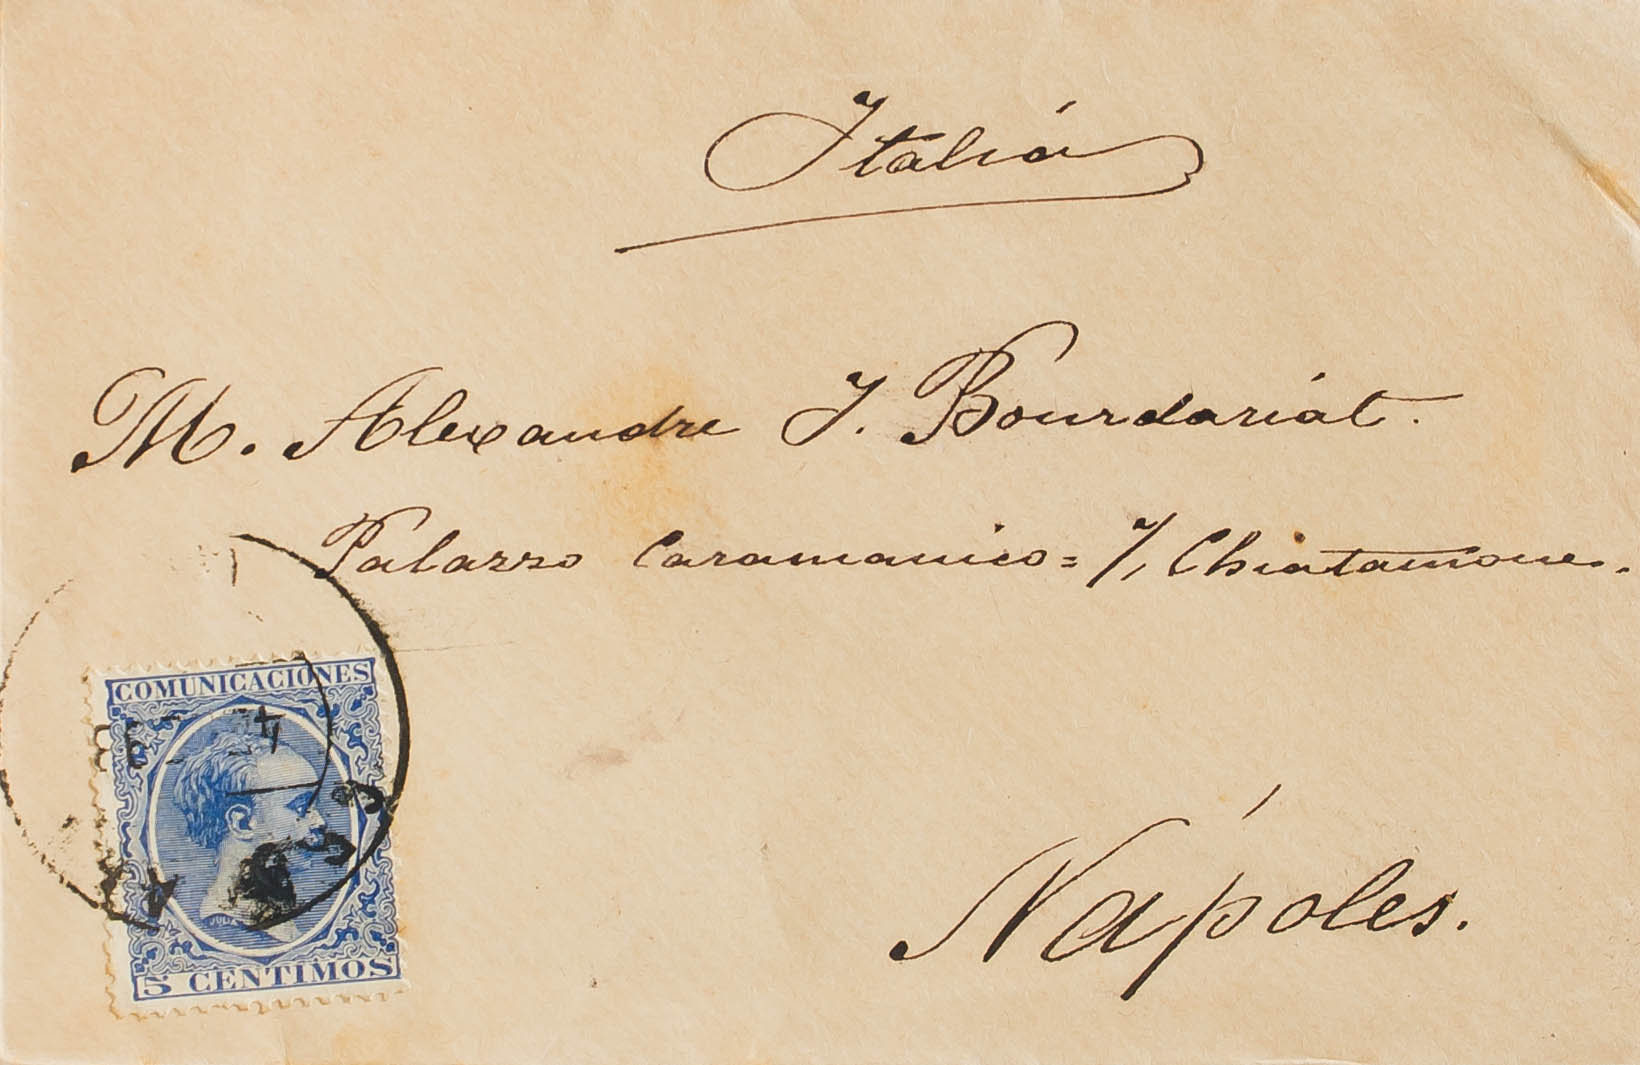 Italiá
M. Alexandre J. Bourdariát.
Palazzo Caramanico = 7, Chiatamone.
Nápoles.
COMUNICACIONES
5 CENTIMOS